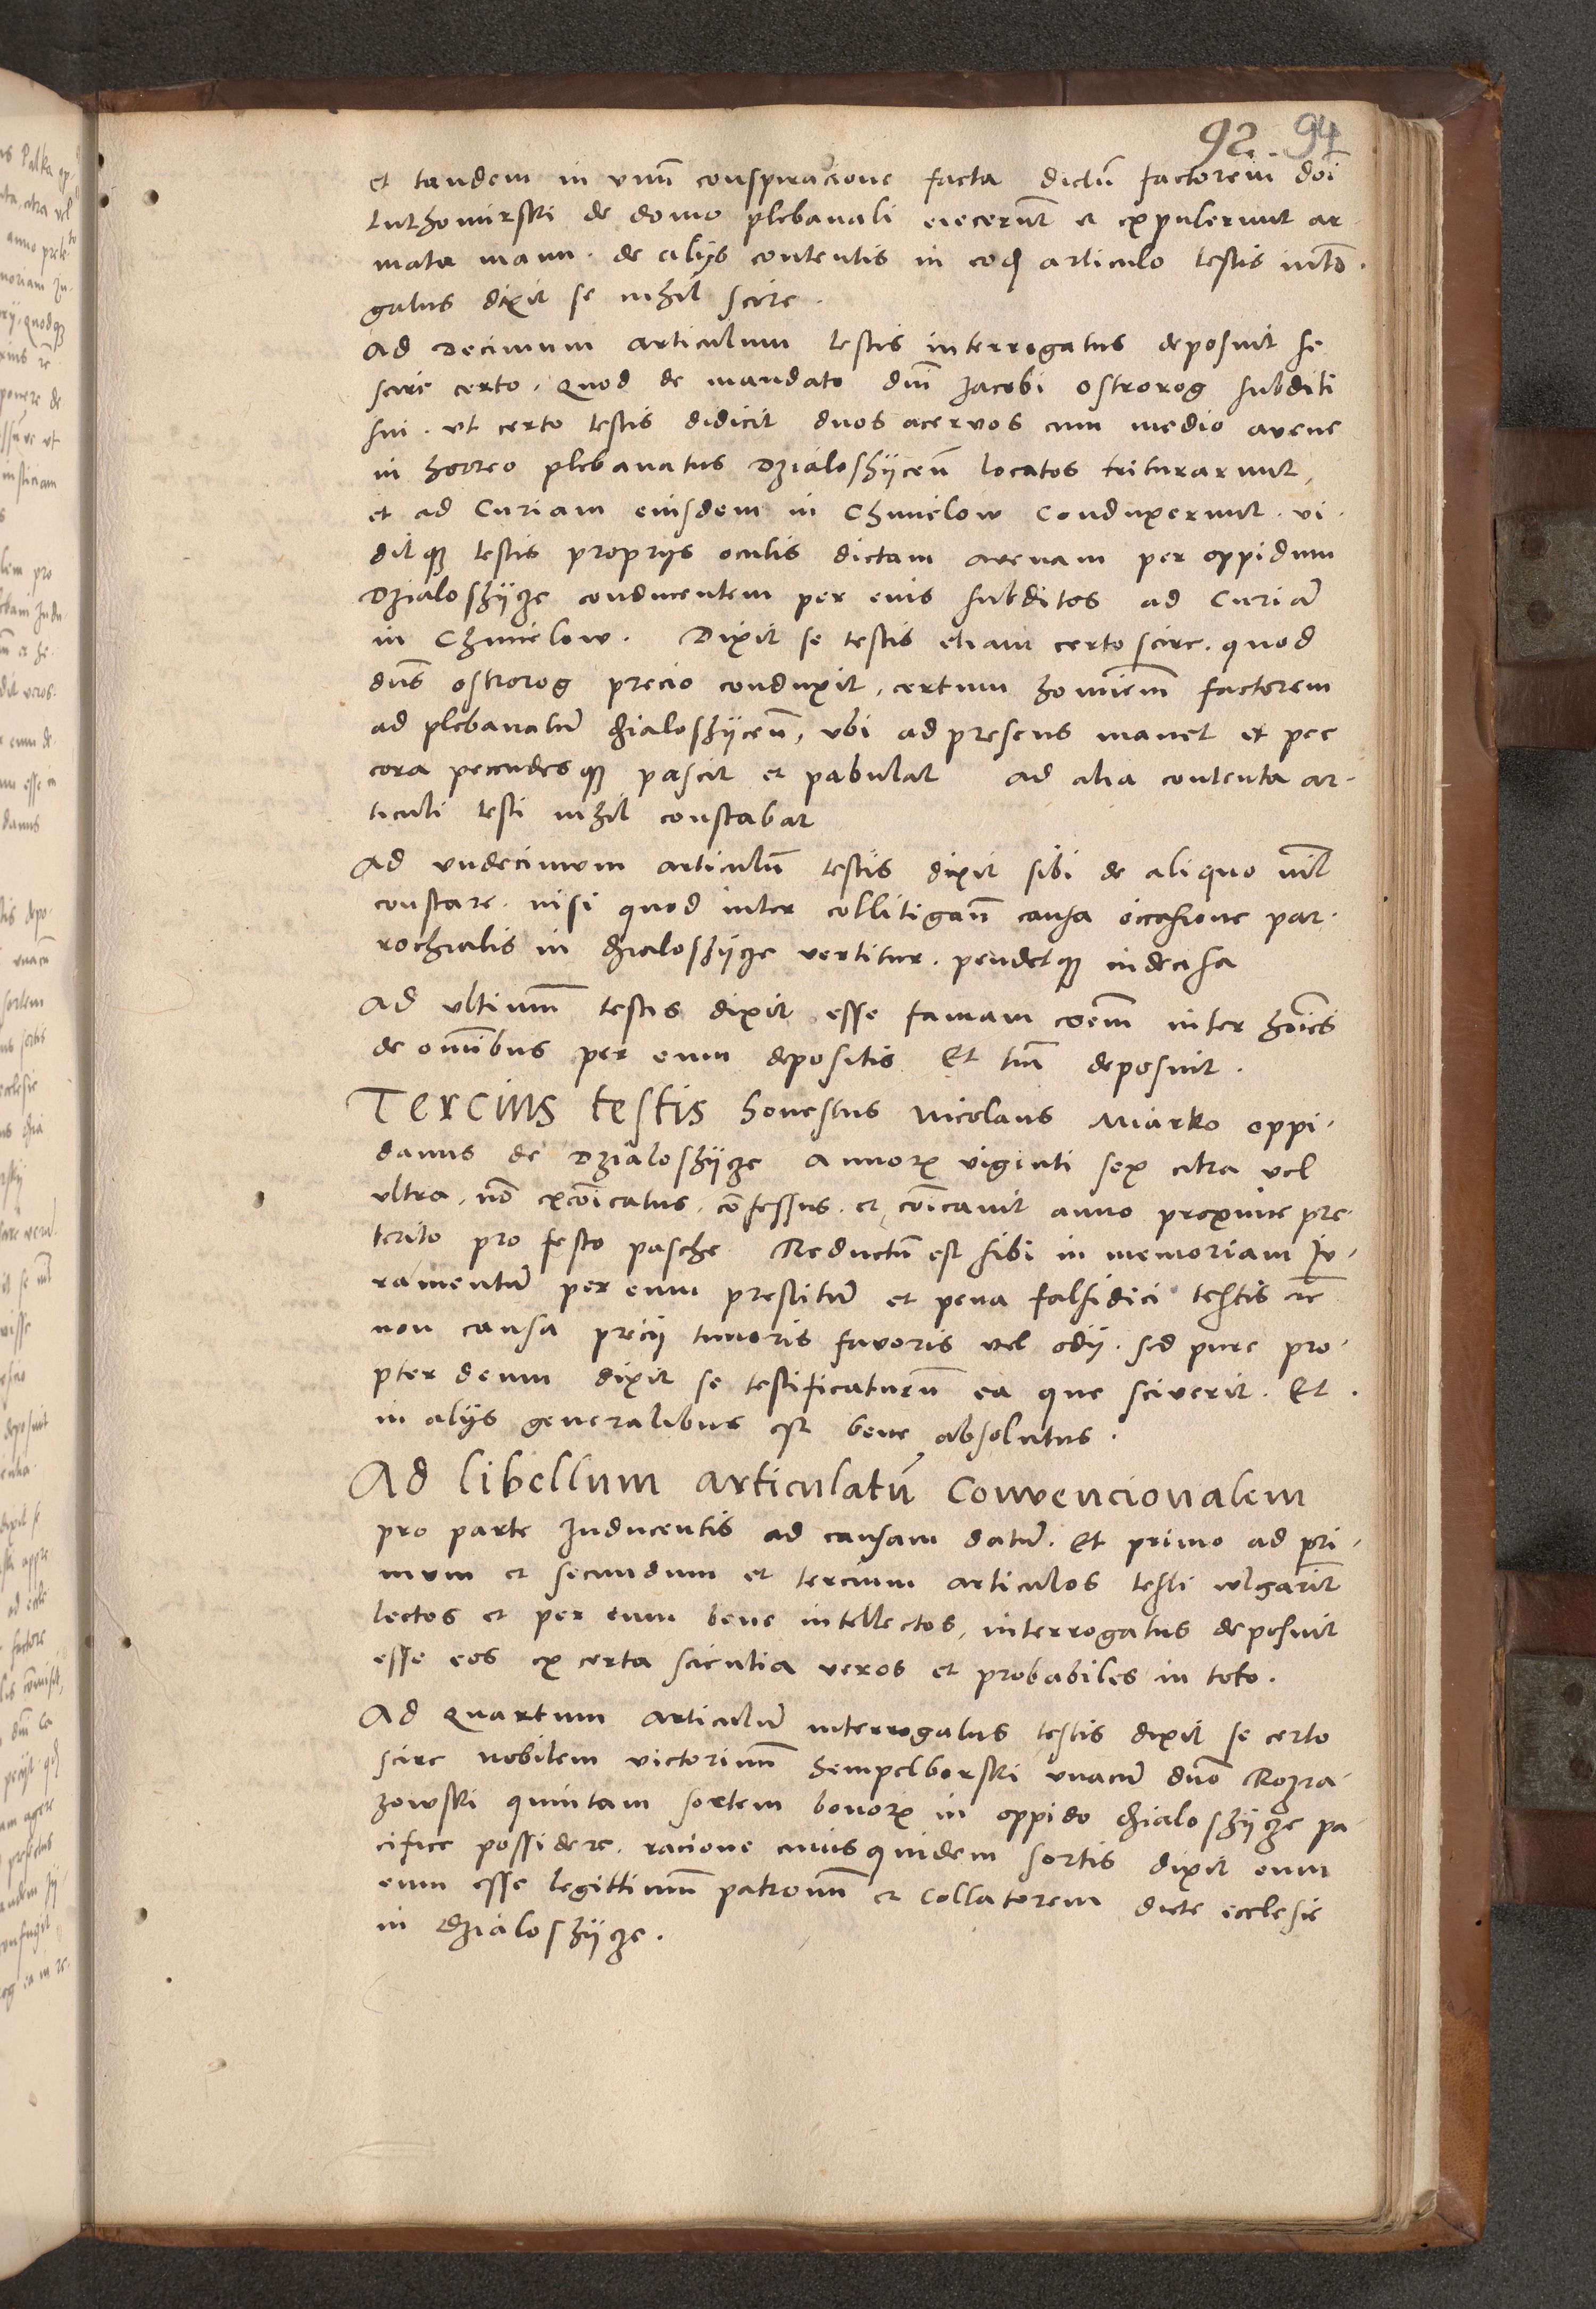 92. 94
et tandem in vnū conspiracione facta dictū factorem doī
Luthomirski de domo plebanali eiecerūt et expulerunt ar
mata manu. de alijs contentis in eod articulo testis intō.
gatus dixit se nihil scire.
Ad Decimum articulum testis interrogatus deposuit se
scire certo. Quod de mandato dnī Jacobi ostrorog subditi
sui. vt certo testis didicit duos acervos cum medio avene
in horreo plebanatus Dzialoshÿceñ locatos triturarunt,
et ad Curiam eiusdem in Chmielow Conduxerunt. vi.
ditq3 testis proprijs oculis dictam avenam per oppidum
Dzialoshÿcze conducentem per eius subditos ad Curiā
in Chmielow. Dixit se testis etiam certo scire. quod
dns̄ ostrorog precio conduxit, certum homiem̄ factorem
ad plebanatū dzialoshÿceñ, vbi ad presens manet et pec
cora pecudesq3 pascit et pabulat Ad alia contenta ar-
ticuli testi nihil constabat
Ad vndecimum articulū testis dixit sibi de aliquo nil̄
constare. nisi quod inter collitigañ causa occasione par.
rochialis in dzialoshÿcze vertitur. pendetq3 indecisa
Ad vltimū testis dixit esse famam coēm inter hoīes
de omnibus per eum depositis Et tm̄ deposuit.
Tercius testis honestus Nicolaus Miarko oppi-
danus de Dzialoshÿcze Annorꝝ viginti sex citra vel
vltra, nō excōicatus, cōfessus. et cōicauit anno proxime pre.
terito pro festo pasche Reductū est sibi in memoriam Iu-
ramentū per eum prestitū et pena falsidici testis etc
non causa precij timoris favoris vel odij. sed pure pro-
pter deum dixit se testificaturū ea que sciverit. Et.
in alijs generalibus est bene absolutus.
Ad libellum articulatū Convencionalem
pro parte Inducentis ad causam datū. Et primo ad pri-
mum et secundum et tercium articulos testi vlgarit̄
lectos et per eum bene intellectos, interrogatus deposuit
esse eos ex certa scientia veros et probabiles in toto.
Ad Quartum articulū interrogatus testis dixit se certo
scire nobilem victorinū Sempelborski vnacū dnō Rozra-
zowski quintam sortem bonorꝝ in oppido dzialoshÿcze pa-
cifice possidere. racione cuius quidem sortis dixit eum
eum esse legittimū patronū et Collatorem dicte ecclesie
in dzialoshÿcze.